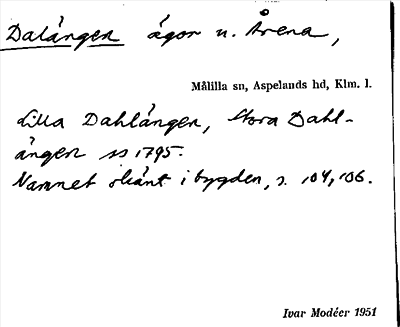 Dalängen ägor u. Årena,
Målilla sn, Aspelands hd, Klm. l.
Lilla Dahlängen, Stora Dahl-
ängen ss 1795.
Namnet okänt i bygden, s. 104, 106.
Ivar Modéer 1951